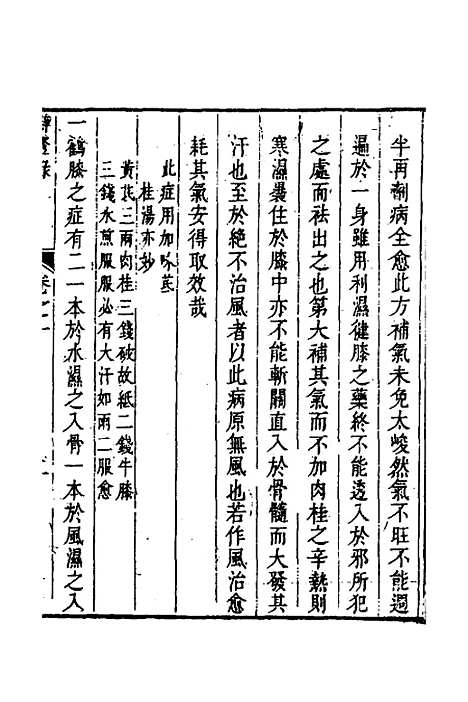 半再劑病全愈此方補氣未免太峻然氣不旺不能週
遍於一身雖用利濕健膝之藥終不能透入於邪所犯
之處而祛出之也第大補其氣而不加肉桂之辛熱則
寒濕裹住於膝中亦不能斬關直入於骨髓而大發其
汗也至於絕不治風者以此病原無風也若作風治愈
耗其氣安得取效哉
此症用加味芪
桂湯亦妙
黃芪三兩肉桂三錢破故紙二錢牛膝
三錢水煎服服必有大汗如雨二服愈
一鶴膝之症有二一本於水濕之入骨一本於風濕之入
辨證錄
卷之二